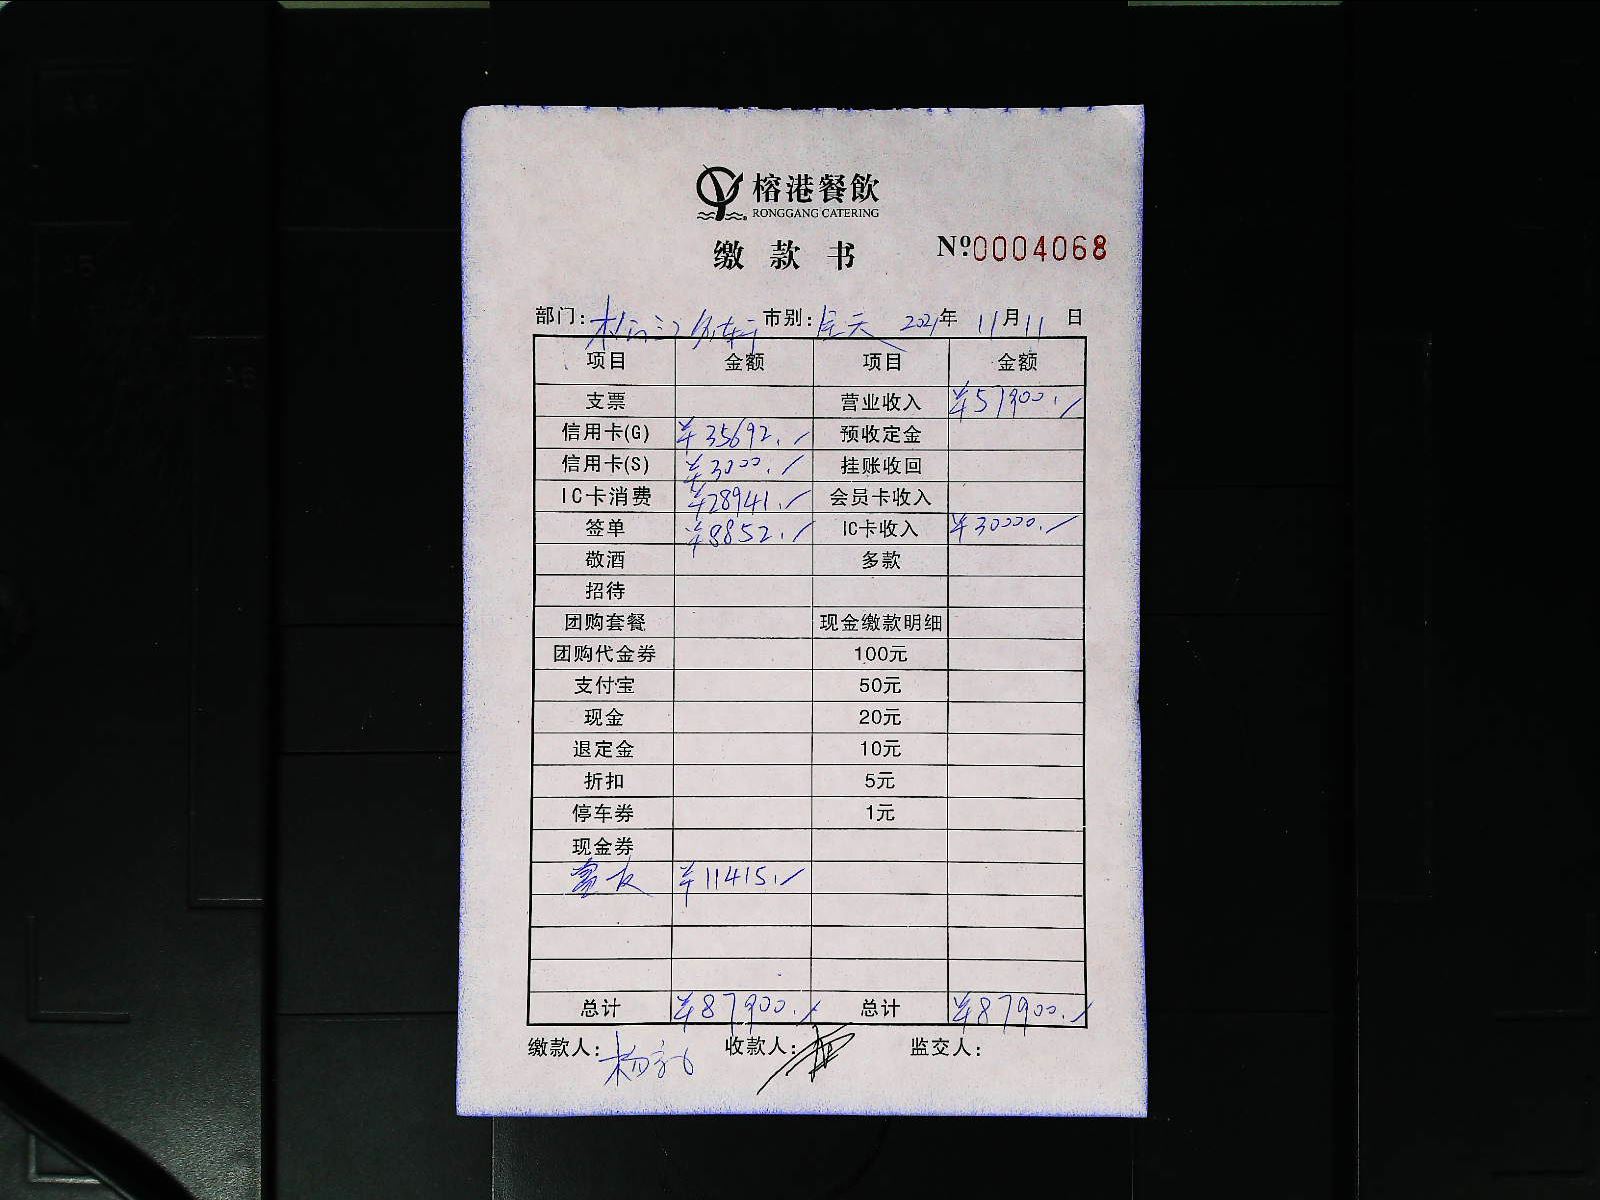 榕港餐飲
RONGGANG CATERING
缴款书 Nº0004068
部门: 市别:全天 2021年11月11日
项目 金额 项目 金额
支票 营业收入 ¥57900.
信用卡(G) ¥35692. 预收定金
信用卡(S) ¥3000. 挂账收回
IC卡消费 ¥28941. 会员卡收入
签单 ¥8852. IC卡收入 ¥30000.
敬酒 多款
招待
团购套餐 现金缴款明细
团购代金券 100元
支付宝 50元
现金 20元
退定金 10元
折扣 5元
停车券 1元
现金券
¥11415.
总计 ¥87900. 总计 ¥87900.
缴款人: 收款人: 监交人: